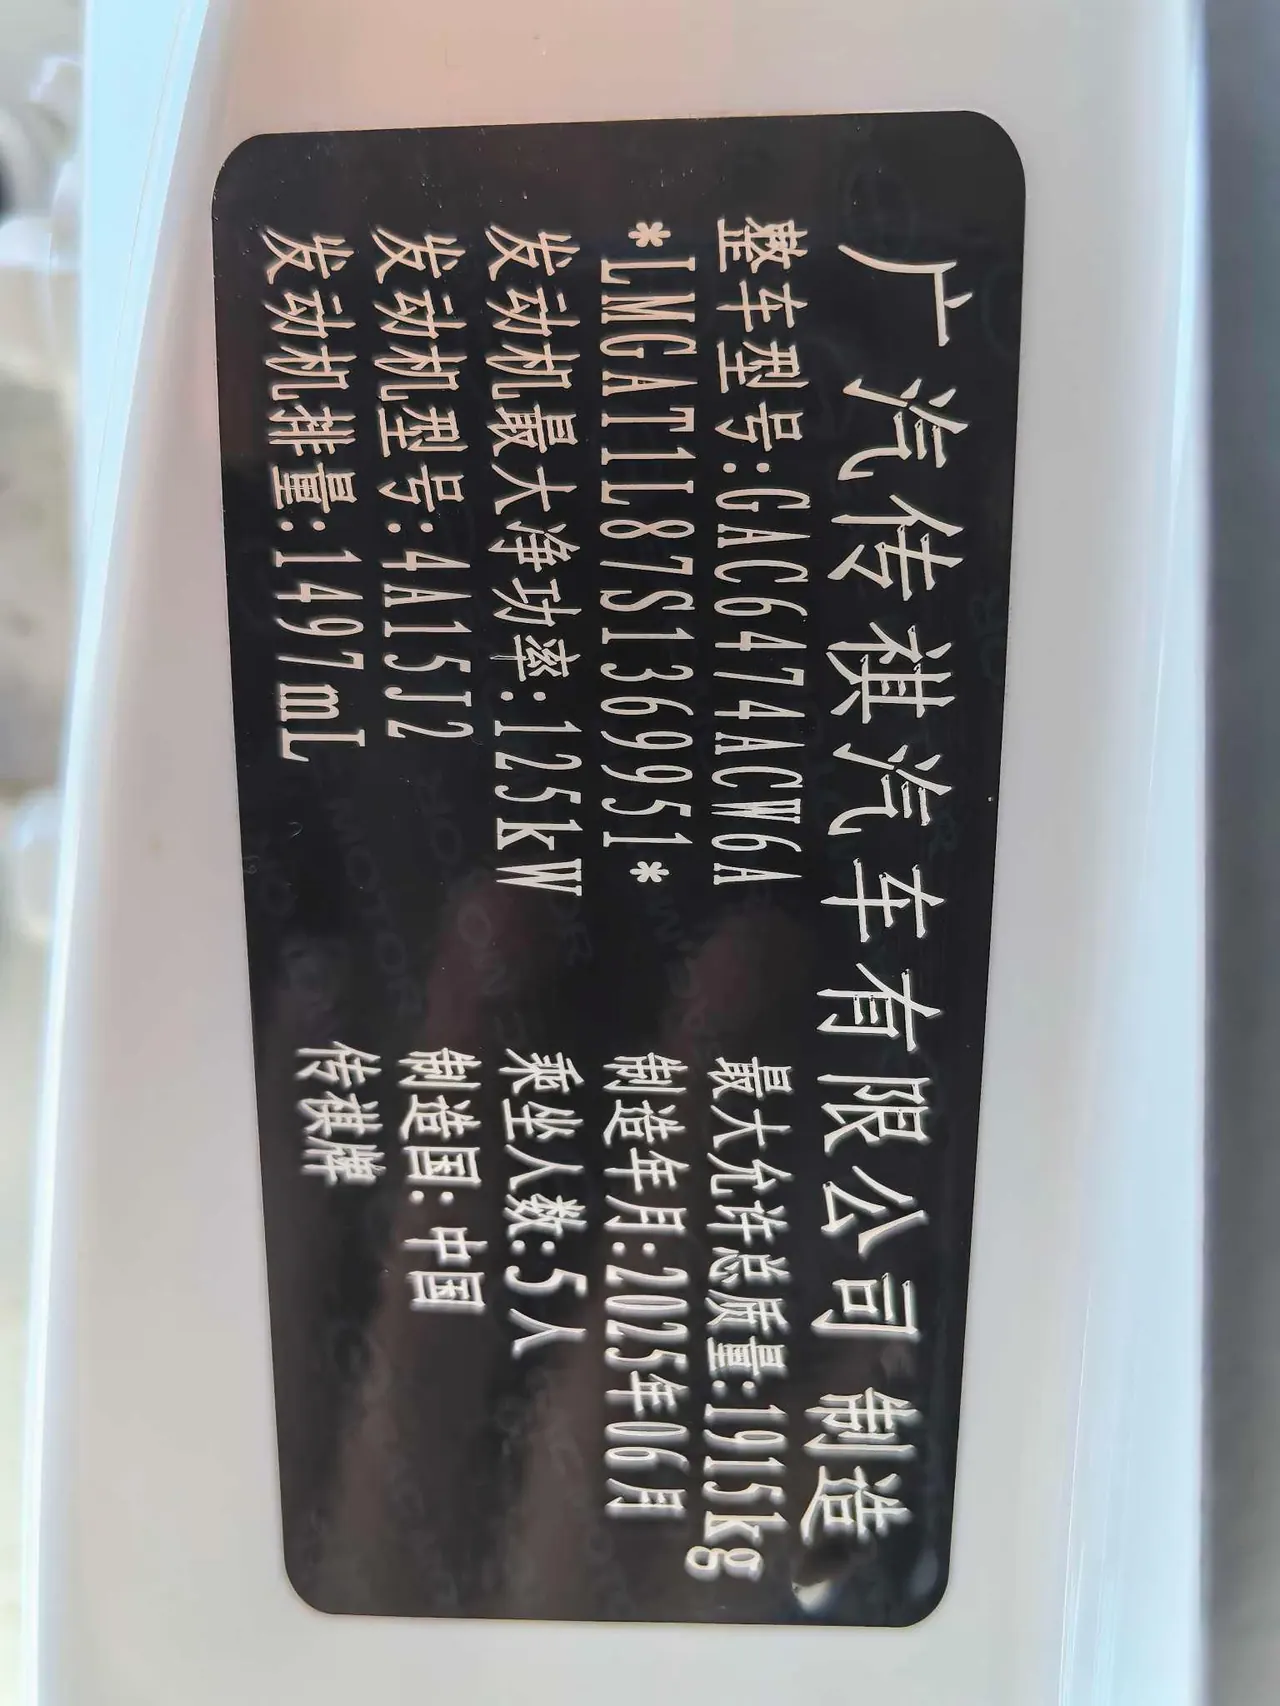 广汽传祺汽车有限公司 制造
整车型号:GAC6474ACW6A 最大允许总质量:1915kg
*LMGAT1L87S1369951* 制造年月:2025年06月
发动机最大净功率:125kW 乘坐人数:5人
发动机型号:4A15J2 制造国:中国
发动机排量:1497mL 传祺牌